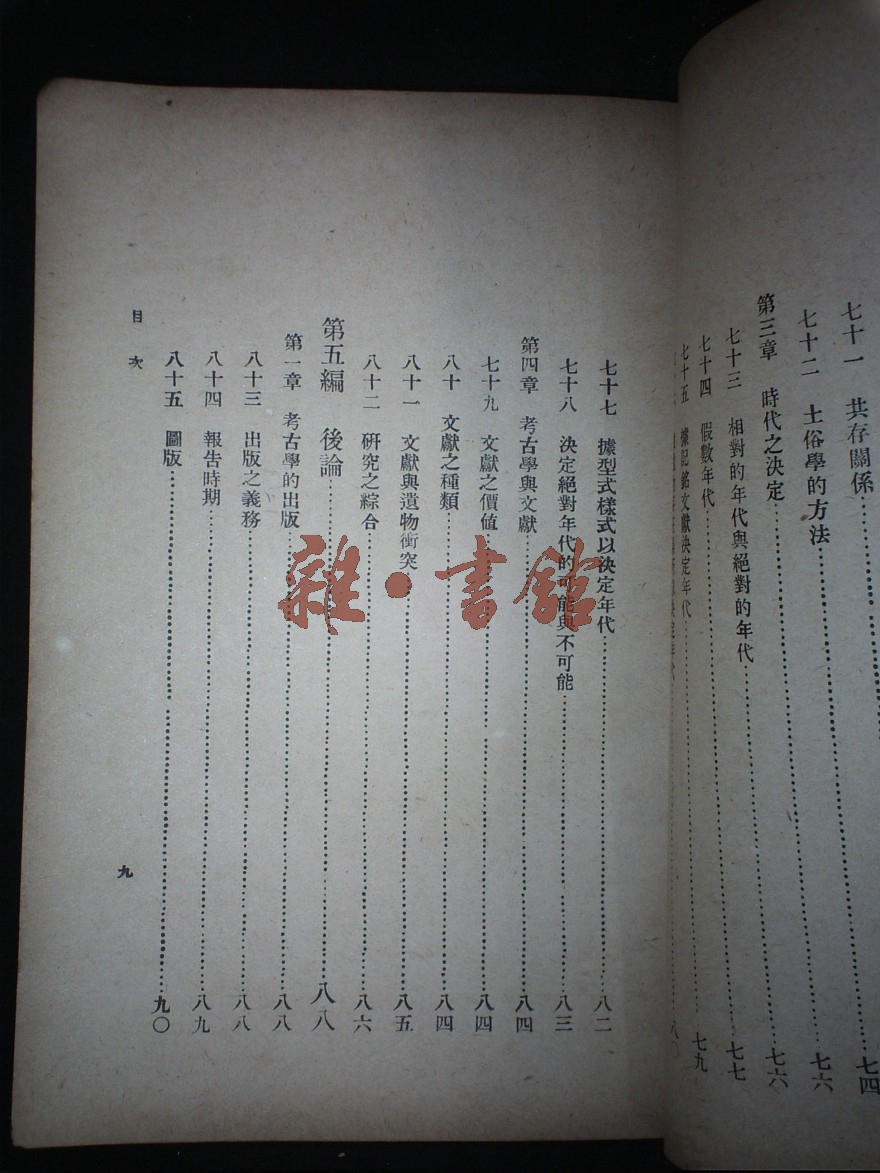 七十一 共存關係……七四
七十二 土俗學的方法……七六
第三章 時代之決定……七六
七十三 相對的年代與絕對的年代……七七
七十四 假數年代……七九
七十五 據記銘文獻決定年代
八〇
七十七 據型式樣式以決定年代……八二
七十八 決定絕對年代的可能與不可能……八三
第四章 考古學與文獻……八四
七十九 文獻之價値……八四
八十 文獻之種類……八四
八十一 文獻與遺物衝突……八五
八十二 硏究之綜合……八六
第五編 後論……八八
第一章 考古學的出版……八八
八十三 出版之義務……八八
八十四 報告時期……八九
八十五 圖版……九〇
目次
九
雜·書館